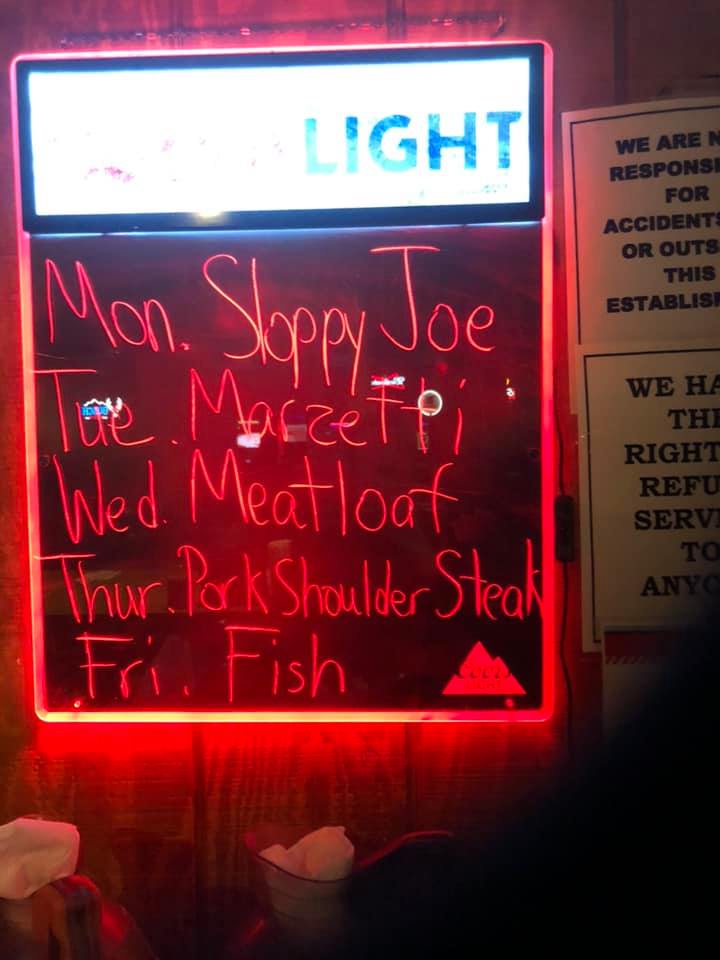 LIGHT
Mon. Sloppy Joe
Tue. Marzetti
Wed. Meatloaf
Thur. Pork Shoulder Steak
Fri. Fish
Coors
LIGHT
WE ARE N
RESPONSI
FOR
ACCIDENTS
OR OUTS
THIS
ESTABLIS
WE HA
THE
RIGHT
REFU
SERV
TO
ANYO